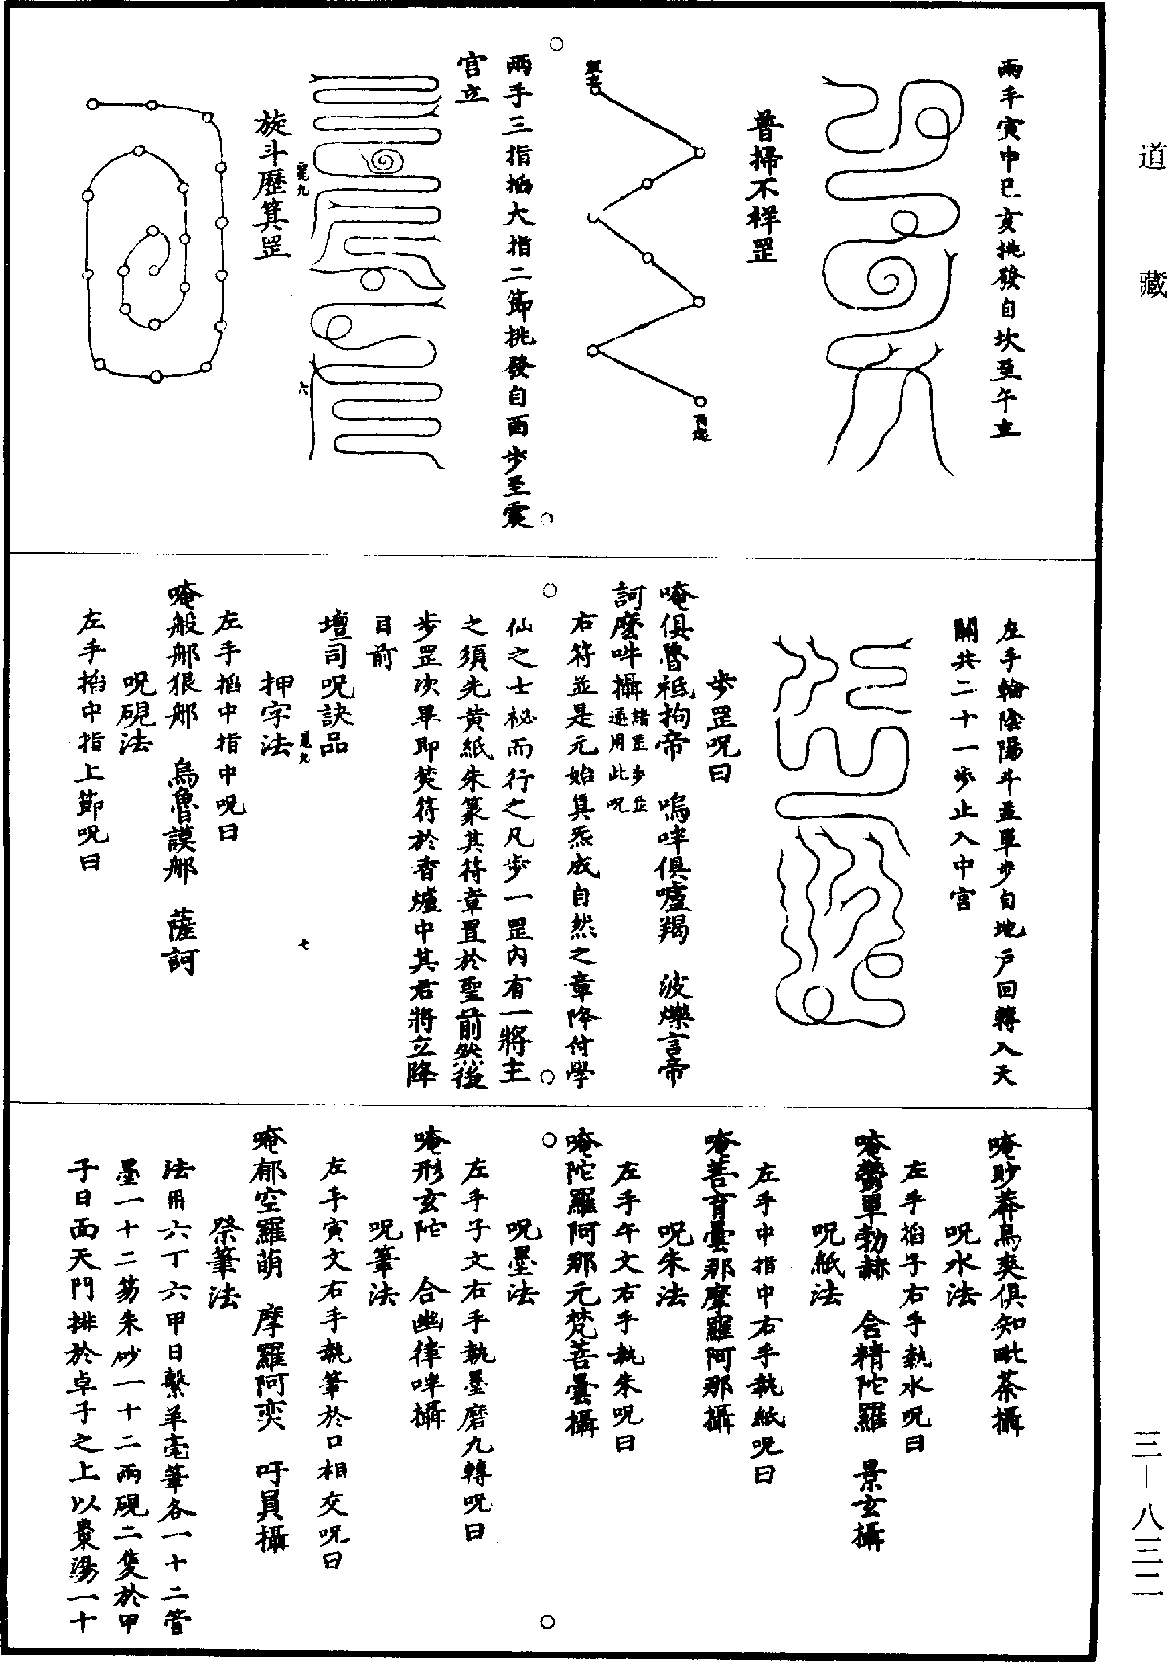 道藏
三—八三二
兩手寅中巳亥挑發自坎至午立
普掃不祥罡
兩手三指掐大指二節挑發自酉步至震
宮立
旋斗歷箕罡
六
左手輪陰陽斗並單步自地戶回轉入天
關共二十一步止入中宮
步罡呪曰
唵俱魯祗拘帝　嗚吽俱嚧羯　波爍言帝
訶麼吽攝諸罡步並通用此呪
右符並是元始真炁成自然之章降付學
仙之士秘而行之凡步一罡內有一將主
之須先黃紙朱篆其符章置於聖前然後
步罡次畢即焚符於香爐中其君將立降
目前
壇司呪訣品
七
押字法
左手掐中指中呪曰
唵般那狠那　烏魯謨那　薩訶
呪硯法
左手掐中指上節呪曰
唵眇莾烏爽俱知毗茶攝
呪水法
左手掐子右手執水呪曰
單勃赫　含精陀羅　景玄攝
呪紙法
左手中指中右手執紙呪曰
唵善育曇那摩羅阿那攝
呪朱法
左手午文右手執朱呪曰
唵陀羅阿那元梵善曇攝
呪墨法
左手子文右手執墨磨九轉呪曰
唵形玄陀　合幽律吽攝
呪筆法
左手寅文右手執筆於口相交呪曰
唵郁空羅萌　摩羅阿奕　吁員攝
祭筆法
法用六丁六甲日繫羊毫筆各一十二管
墨一十二笏朱砂一十二兩硯二隻於甲
子日面天門排於卓子之上以棗湯一十